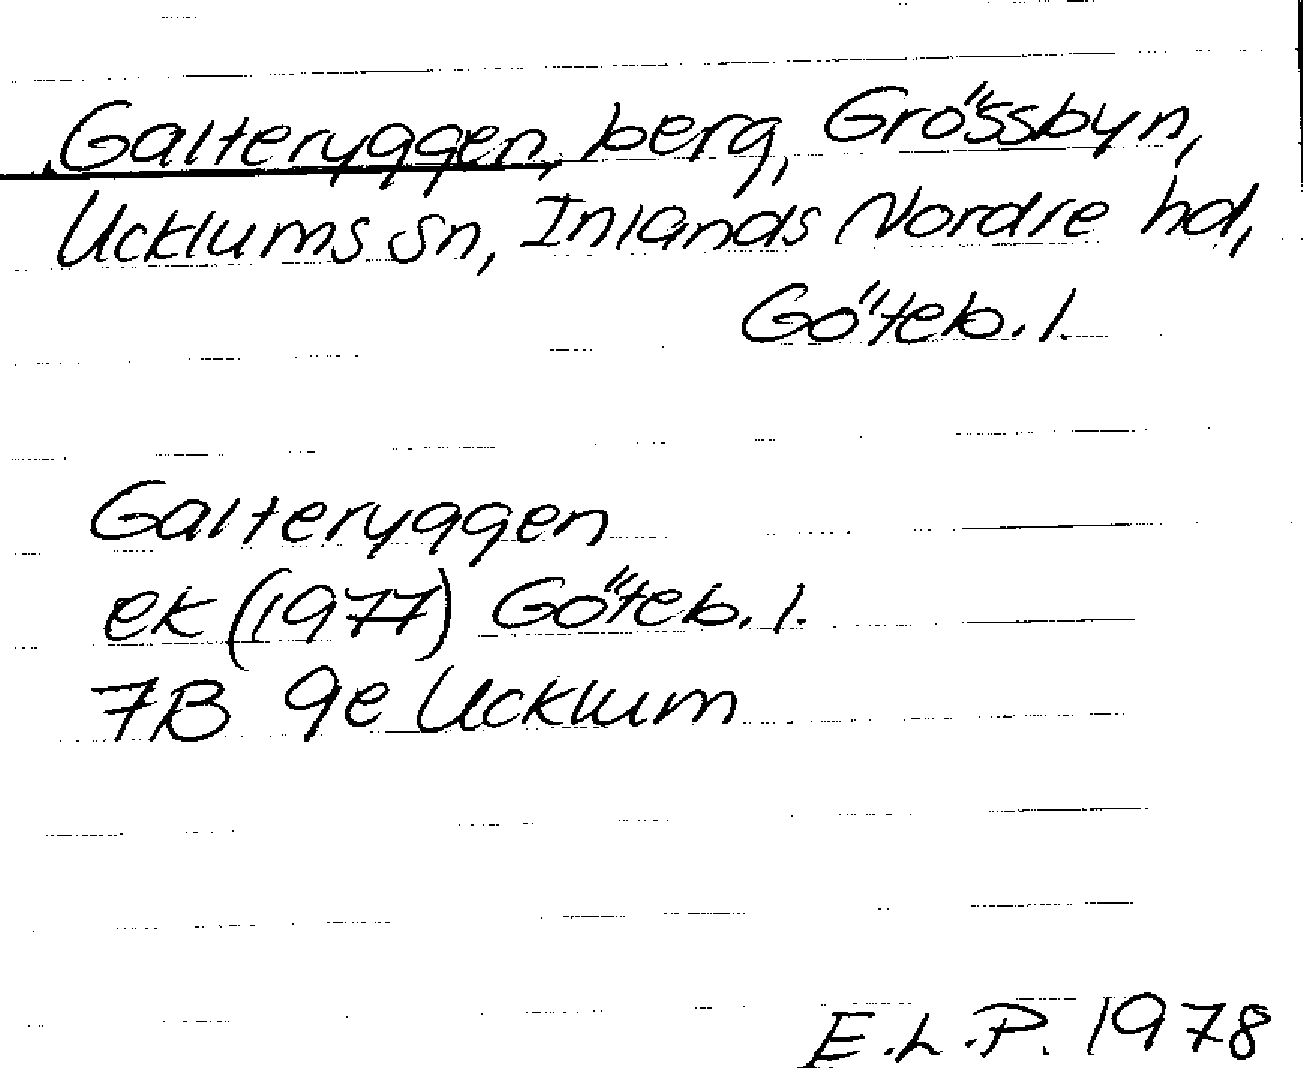 Galteryggen, berg, Grössbyn,
Ucklums sn, Inlands Nordre hd,
Göteb. l.
Galteryggen
ek (1977) Göteb. l.
7B 9e Ucklum
E.L.P. 1978